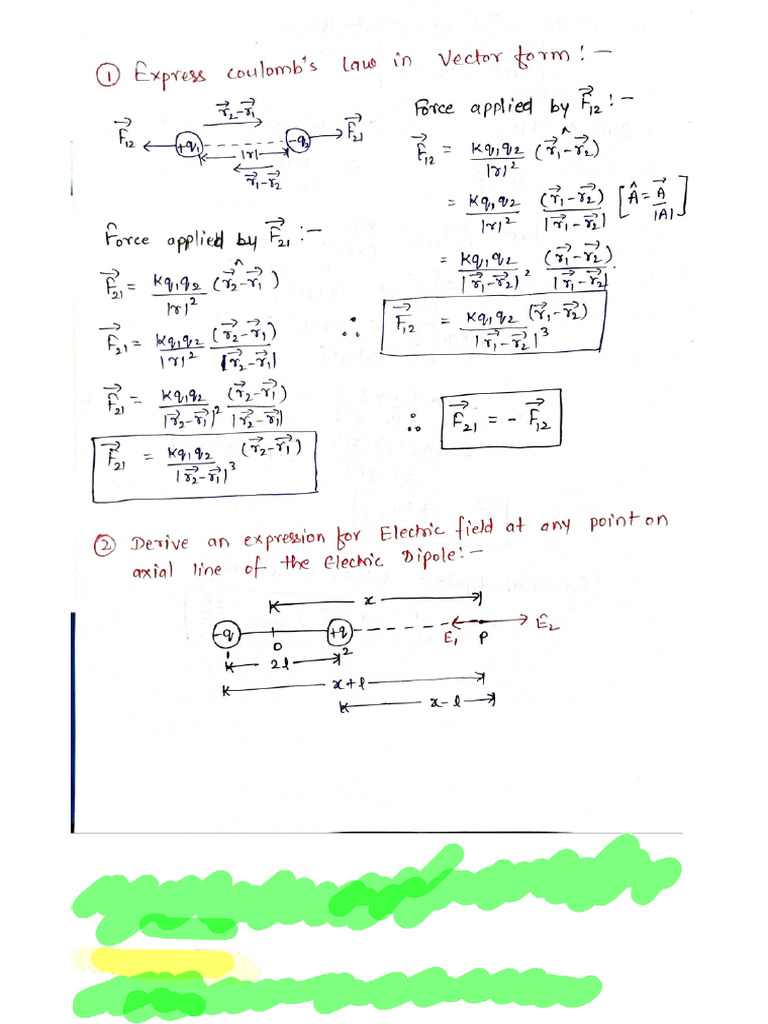 ① Express coulomb's law in Vector form:-
r⃗₂-r⃗₁
F⃗₁₂ +q₁ |r| -q₂ F⃗₂₁
r⃗₁-r⃗₂
Force applied by F⃗₂₁:-
F⃗₂₁ = Kq₁q₂/|r|² (r⃗₂-^r⃗₁)
F⃗₂₁ = Kq₁q₂/|r|² (r⃗₂-r⃗₁)/|r⃗₂-r⃗₁|
F⃗₂₁ = Kq₁q₂/|r⃗₂-r⃗₁|² (r⃗₂-r⃗₁)/|r⃗₂-r⃗₁|
F⃗₂₁ = Kq₁q₂/|r⃗₂-r⃗₁|³ (r⃗₂-r⃗₁)
Force applied by F⃗₁₂:-
F⃗₁₂ = Kq₁q₂/|r|² (r⃗₁-^r⃗₂)
= Kq₁q₂/|r|² (r⃗₁-r⃗₂)/|r⃗₁-r⃗₂| [Â = A⃗/|A|]
= Kq₁q₂/|r⃗₁-r⃗₂|² (r⃗₁-r⃗₂)/|r⃗₁-r⃗₂|.
∴ F⃗₁₂ = Kq₁q₂ (r⃗₁-r⃗₂)/|r⃗₁-r⃗₂|³
∴ F⃗₂₁ = - F⃗₁₂
② Derive an expression for Electric field at any point on
axial line of the Electric Dipole:-
x
-q O +q E₁ P E₂
1 2l 2
x+l
x-l